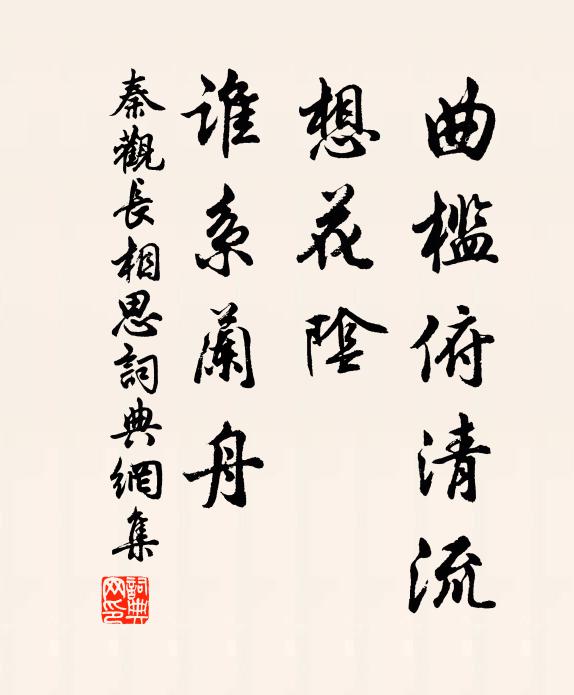 曲檻俯清流
想花陰
誰系蘭舟
秦觀長相思詞典網集
詞典网印